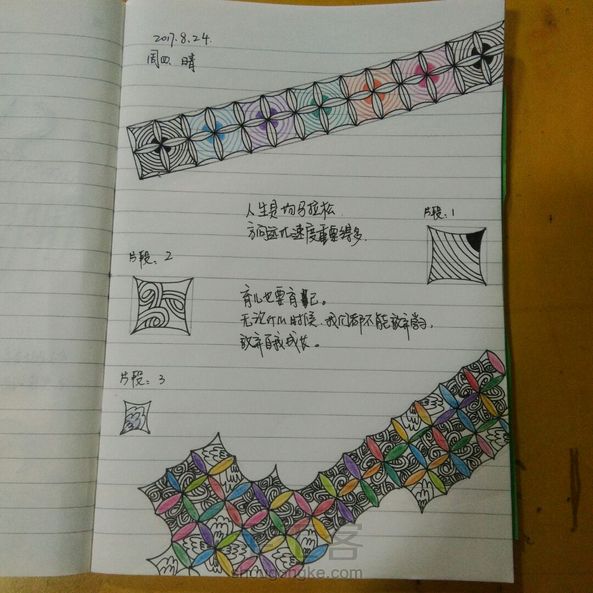 2017.8.24.
周四 晴
人生是场马拉松
方向远比速度重要得多.
片段：1
片段：2
育儿也要育己。
无论什么时候，我们都不能放弃学习，
放弃自我成长。
片段：3
shougongke.com